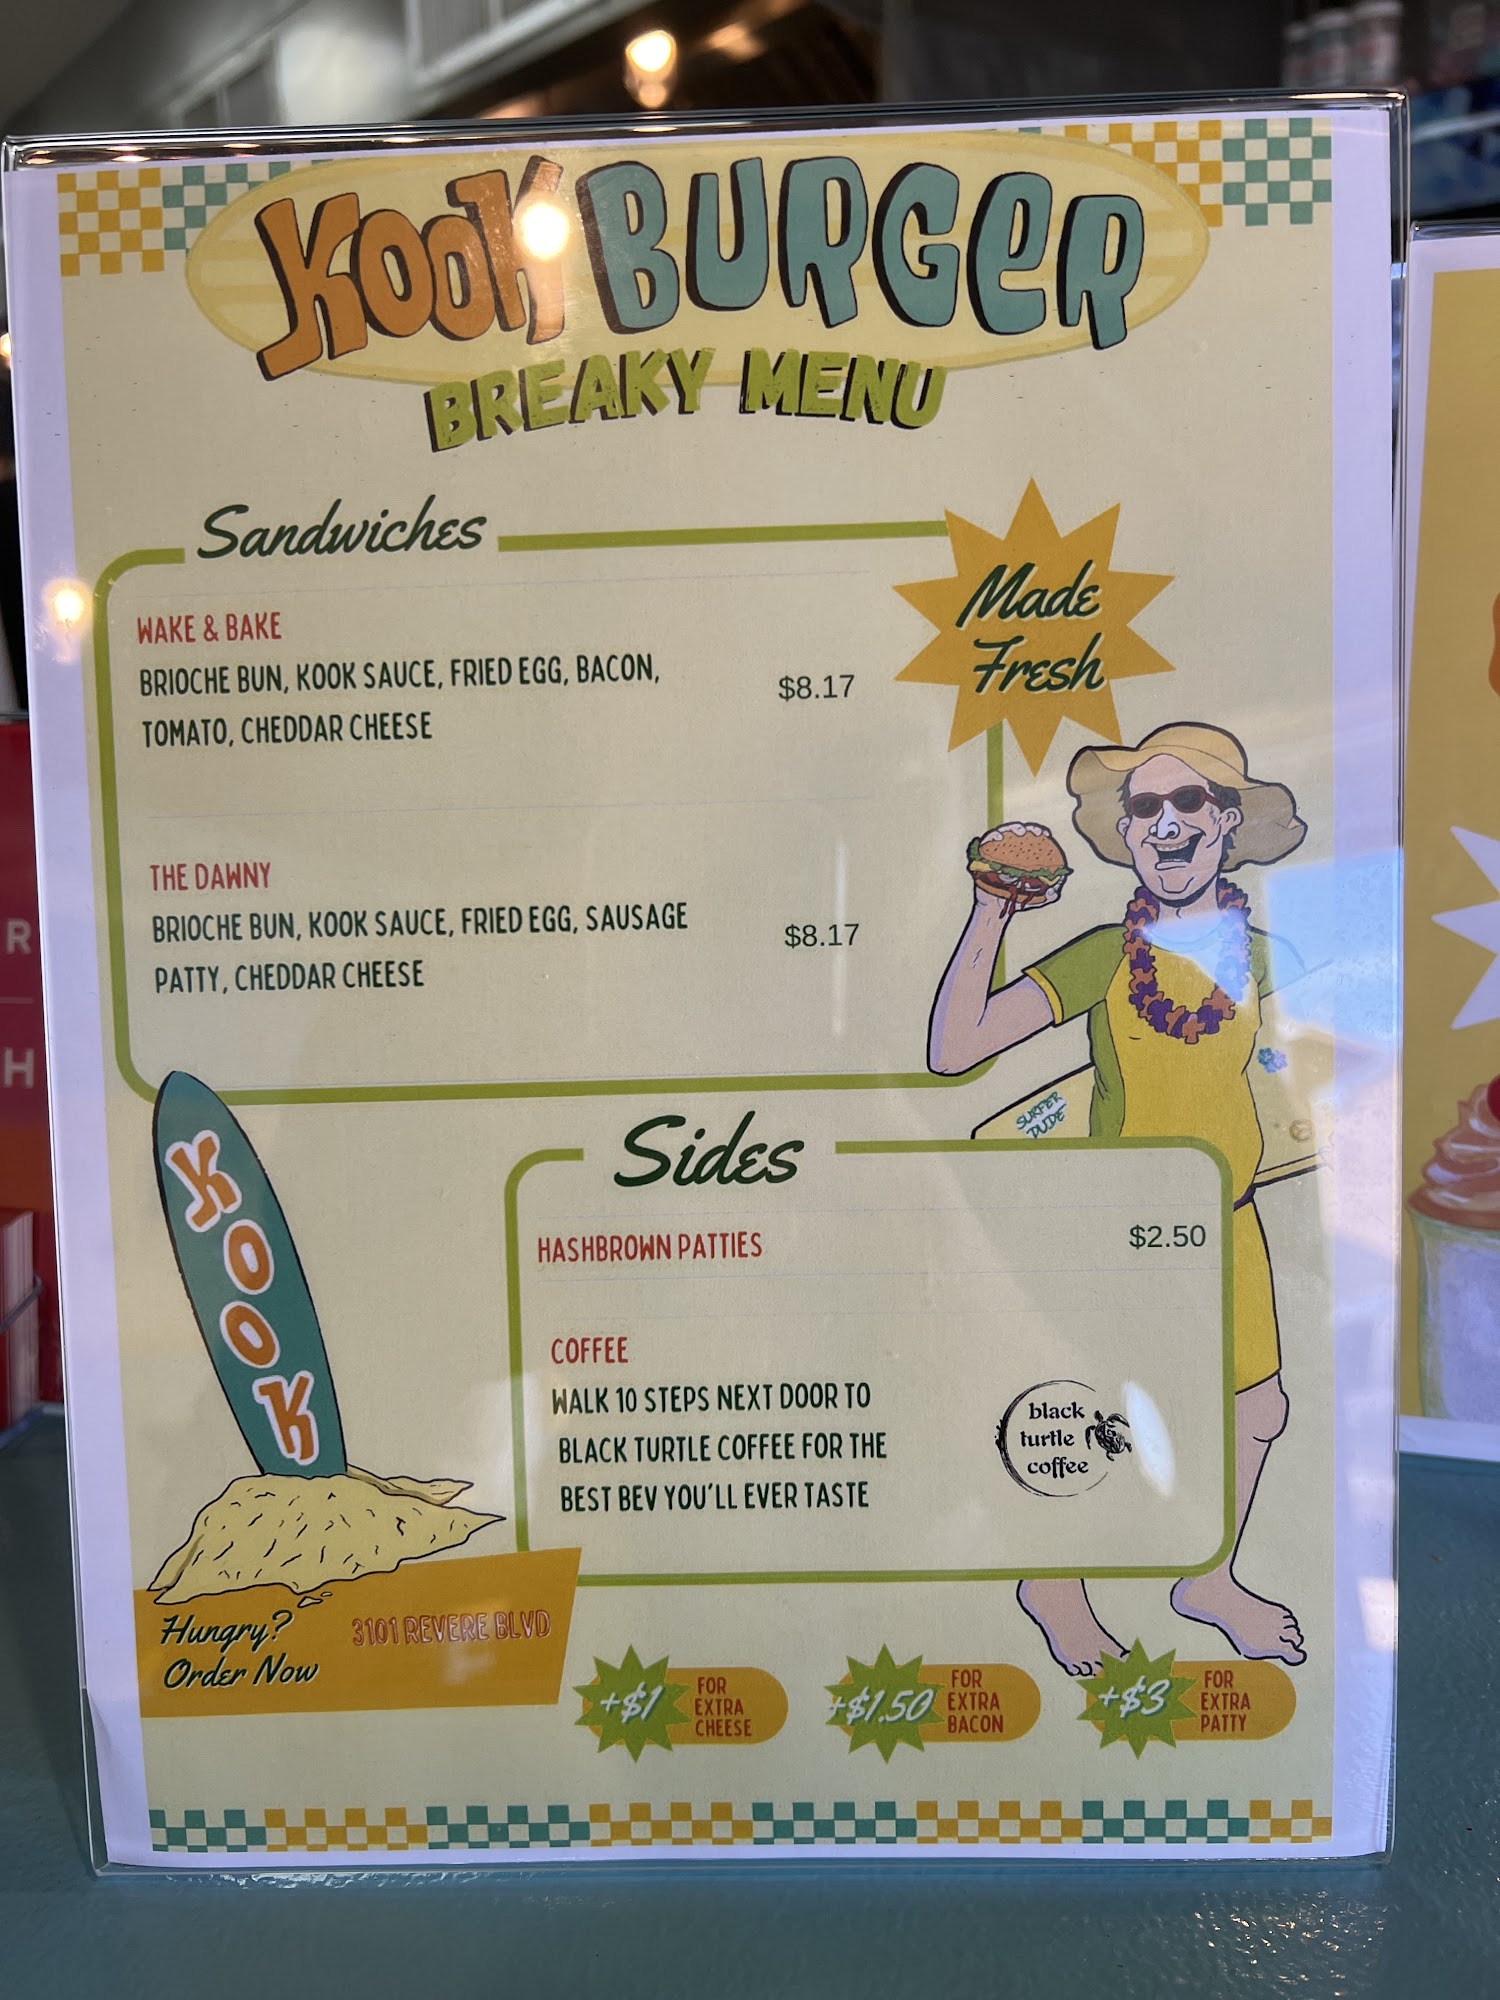 KOOK BURGER
BREAKY MENU
Sandwiches
Made
Fresh
WAKE & BAKE
BRIOCHE BUN, KOOK SAUCE, FRIED EGG, BACON,
TOMATO, CHEDDAR CHEESE
$8.17
THE DAWNY
BRIOCHE BUN, KOOK SAUCE, FRIED EGG, SAUSAGE
PATTY, CHEDDAR CHEESE
$8.17
SURFER
DUDE
KOOK
Sides
HASHBROWN PATTIES
$2.50
COFFEE
WALK 10 STEPS NEXT DOOR TO
BLACK TURTLE COFFEE FOR THE
BEST BEV YOU'LL EVER TASTE
black
turtle
coffee
Hungry?
Order Now
3101 REVERE BLVD
+$1
FOR
EXTRA
CHEESE
+$1.50
FOR
EXTRA
BACON
+$3
FOR
EXTRA
PATTY
R
H